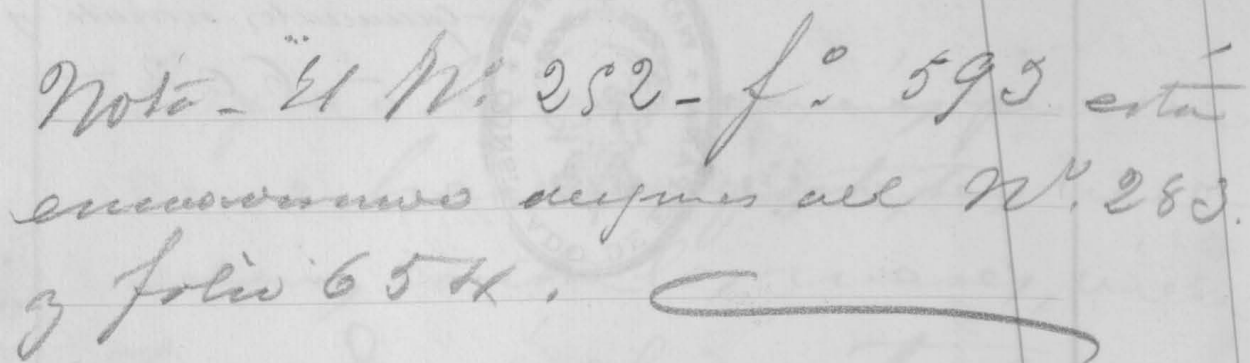 Nota - El Nº 252 - fº 593 está
encuadernado después del Nº 283.
y folio 654.